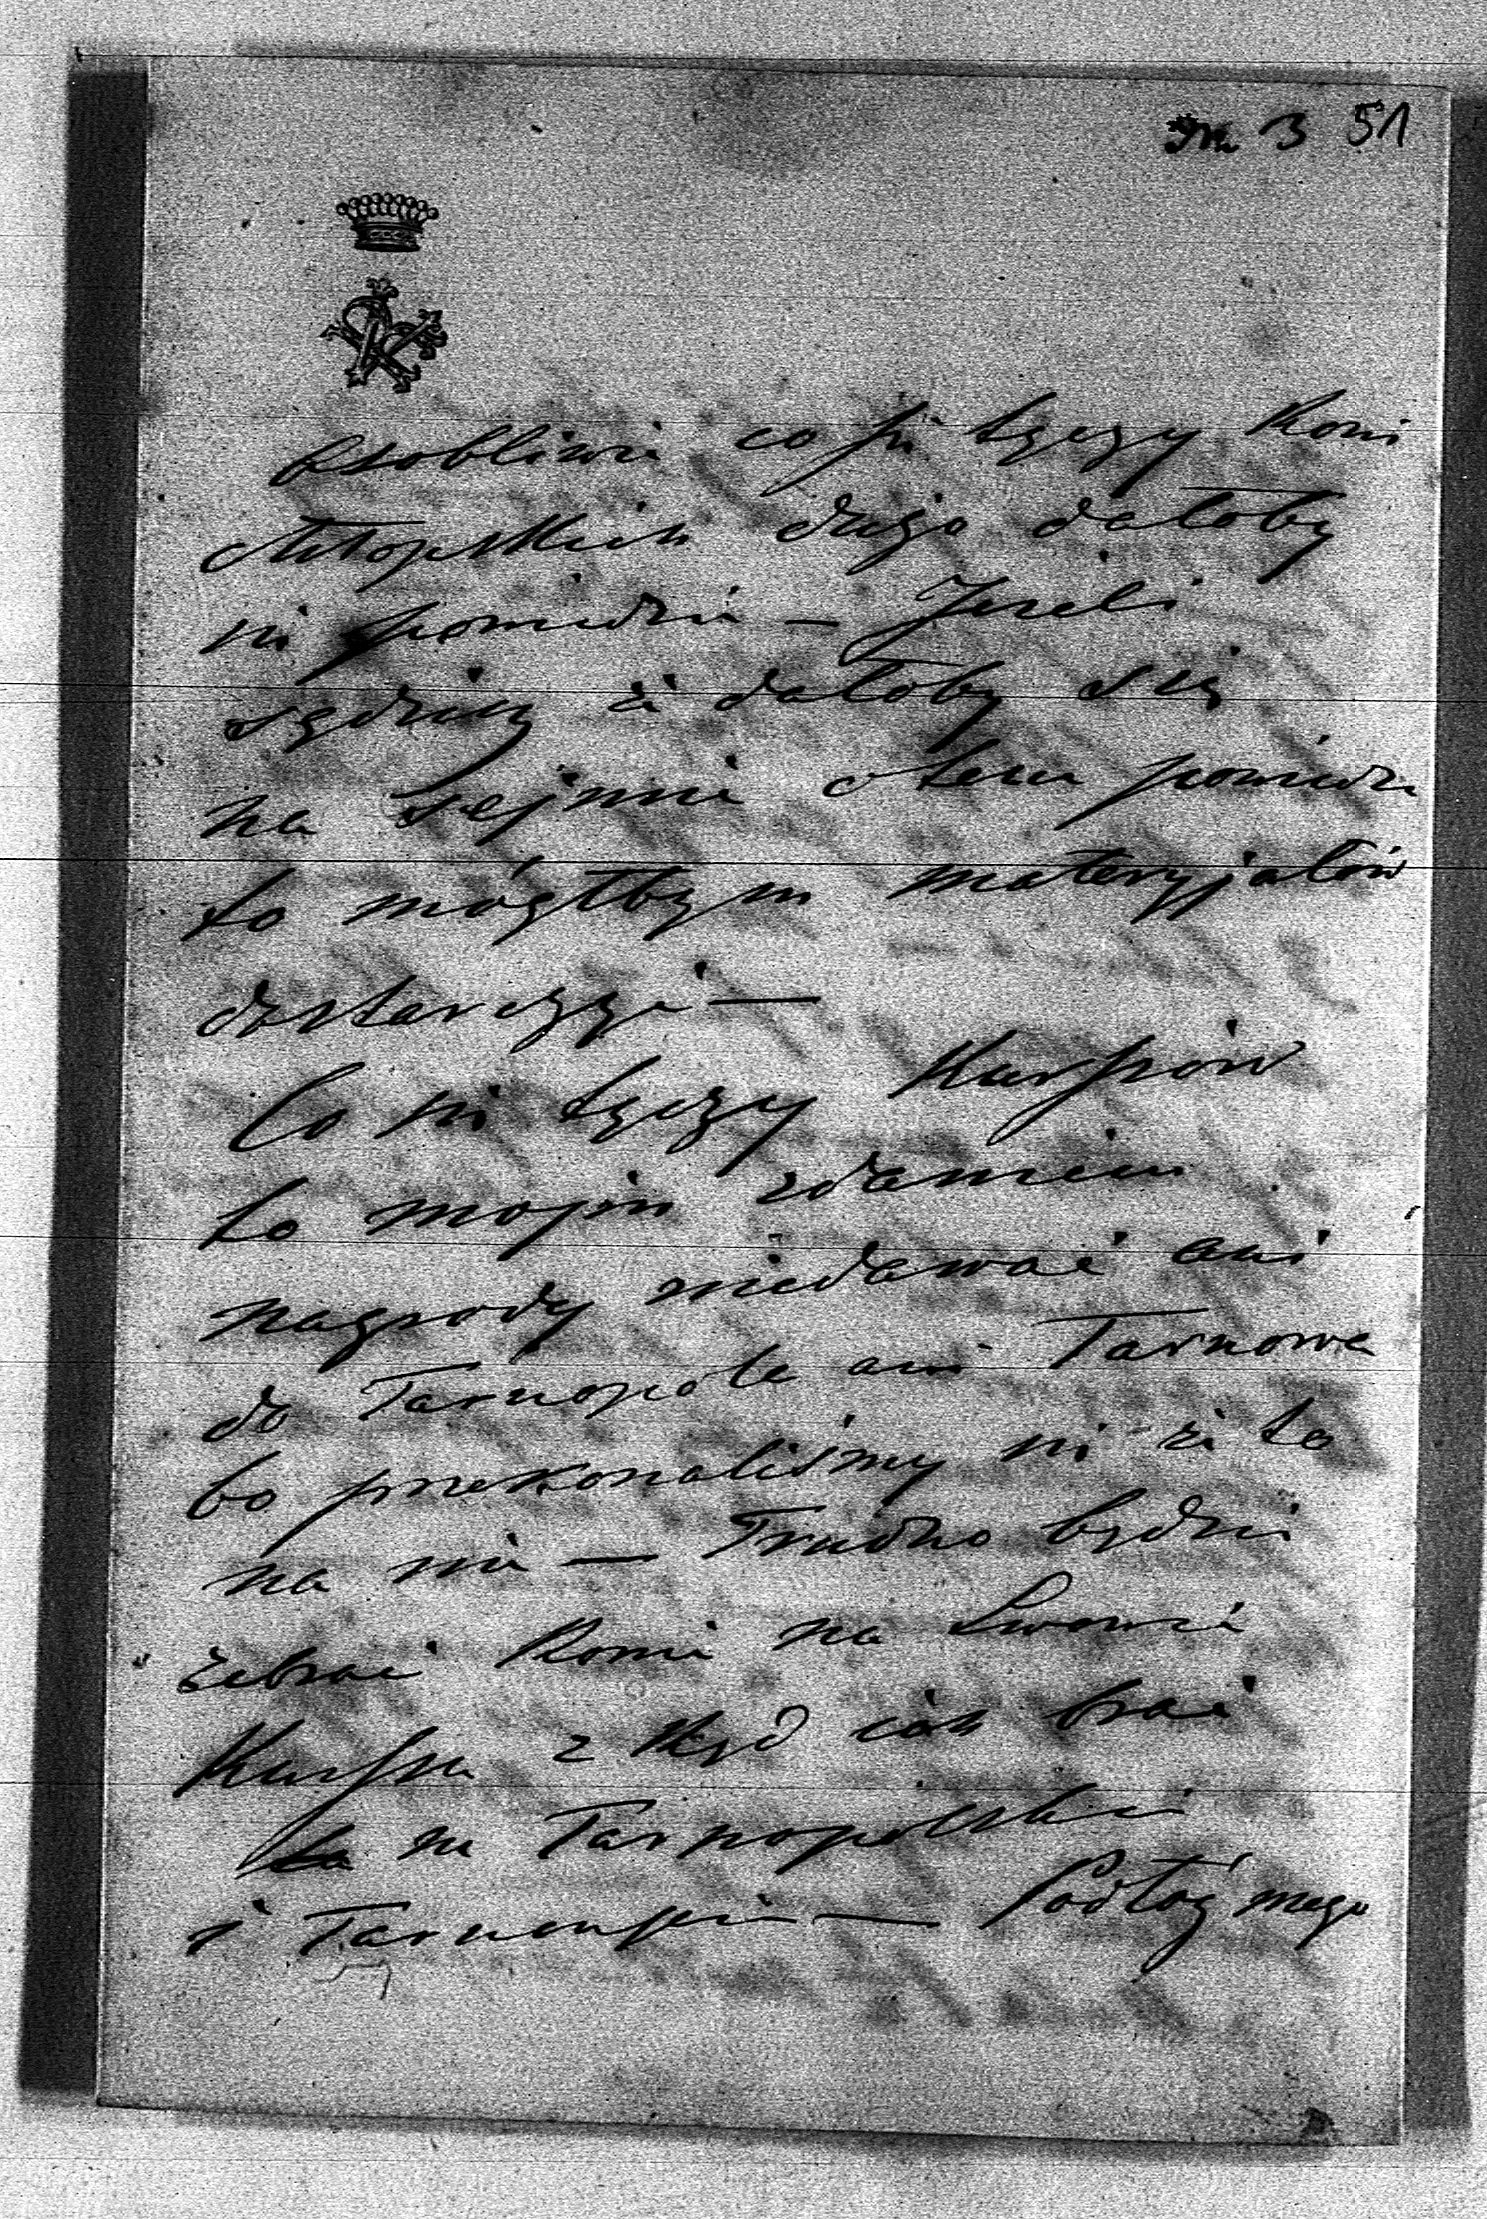 3 51
osobliwie co się tyczy Koni
chłopskich dużo dałoby
się powiedzieć — Jeżeli
sądzisz że dałoby się
na Sejmie o tem powiedzieć
to mógłbym materyjałów
dostarczyć —
Co się tyczy Kursów
to mojem zdaniem
nagrody niedawać ani
do Tarnopola ani Tarnowa
bo przekonaliśmy się że to
na nic — Trudno będzie
zebrać Konie na Lwowie
Kursa z kąd ich brać
na Tarnopolskie
i Tarnowskie — Podłóg mego